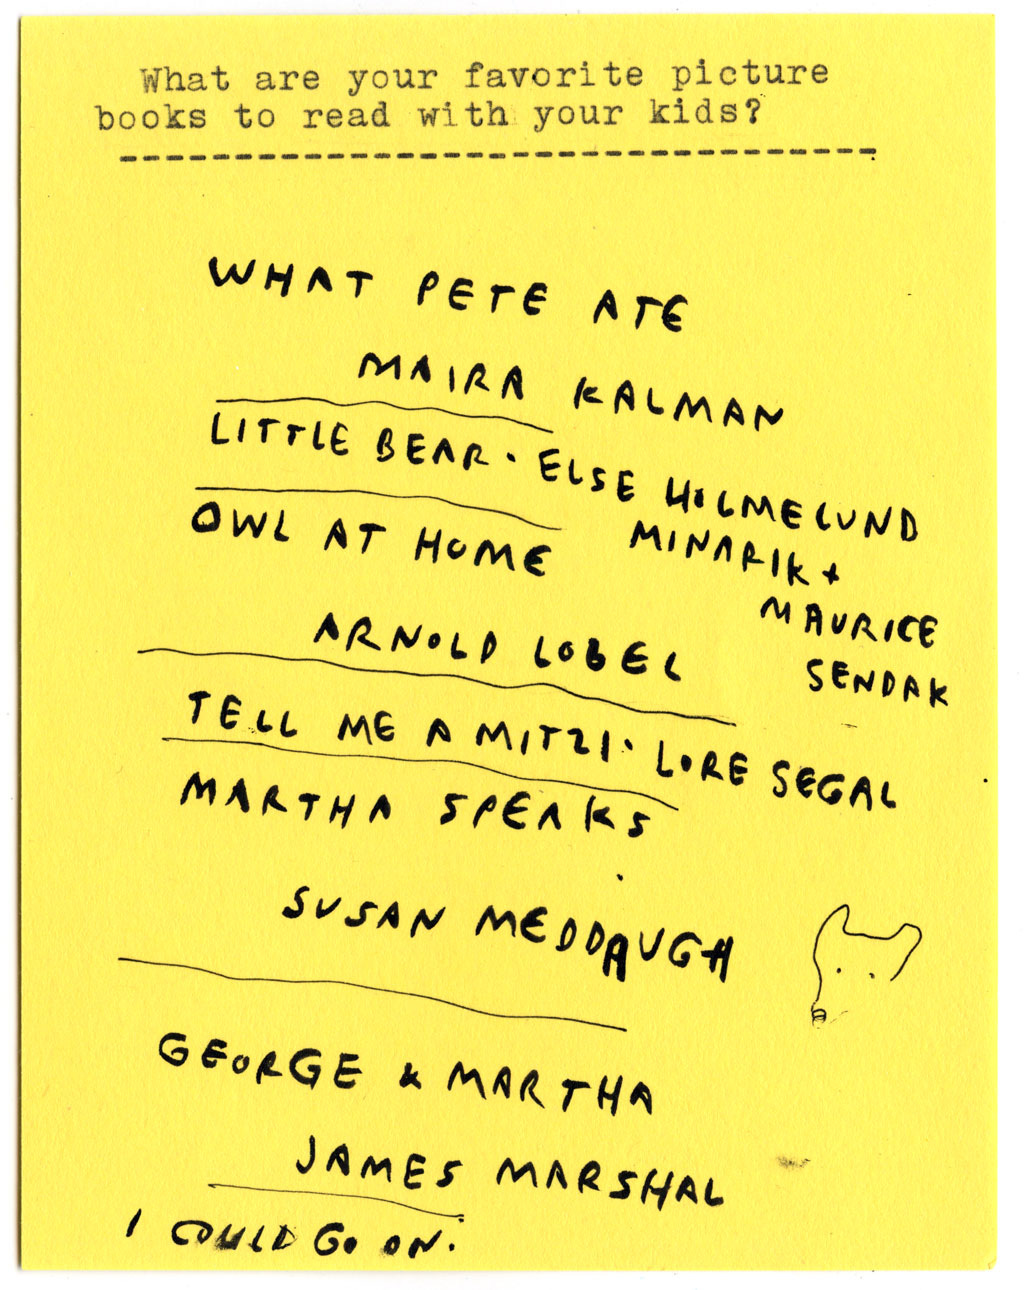 What are your favorite picture
books to read with your kids?
WHAT PETE ATE
MAIRA KALMAN
LITTLE BEAR · ELSE HOLMELUND
MINARIK +
MAURICE
SENDAK
OWL AT HOME
ARNOLD LOBEL
TELL ME A MITZI · LORE SEGAL
MARTHA SPEAKS
SUSAN MEDDAUGH
GEORGE & MARTHA
JAMES MARSHAL
I COULD GO ON.